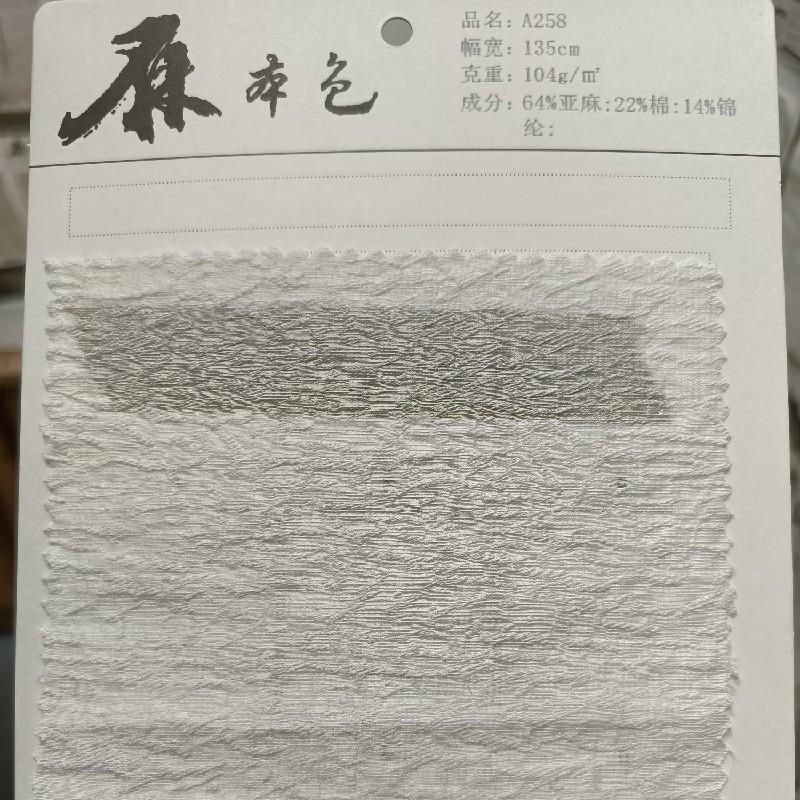 麻本色
品名: A258
幅宽: 135cm
克重: 104g/㎡
成分: 64%亚麻:22%棉:14%锦
纶: